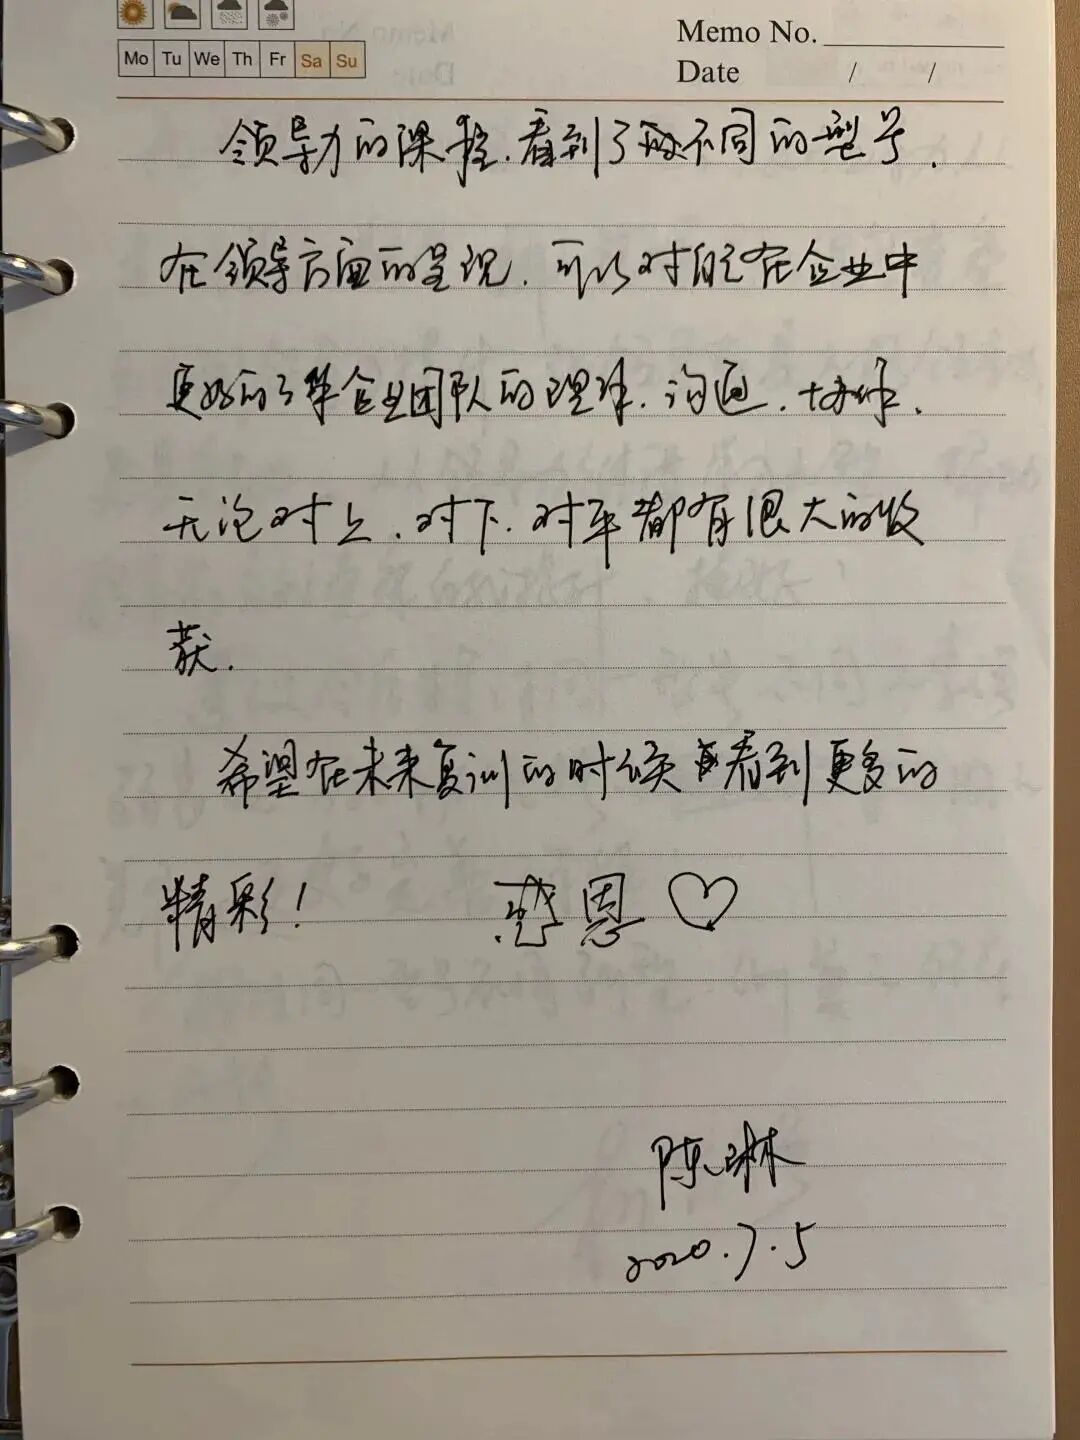 Memo No.
Mo Tu We Th Fr Sa Su
Date / /
领导力的课程,看到了两不同的型号,
在领导方面的呈现,可以对自己在企业中
更好的了解企业团队的理解,沟通,协作,
无论对上,对下,对平都有很大的收
获.
希望在未来复训的时候看到更多的
精彩! 感恩♡
陈琳
2020.7.5